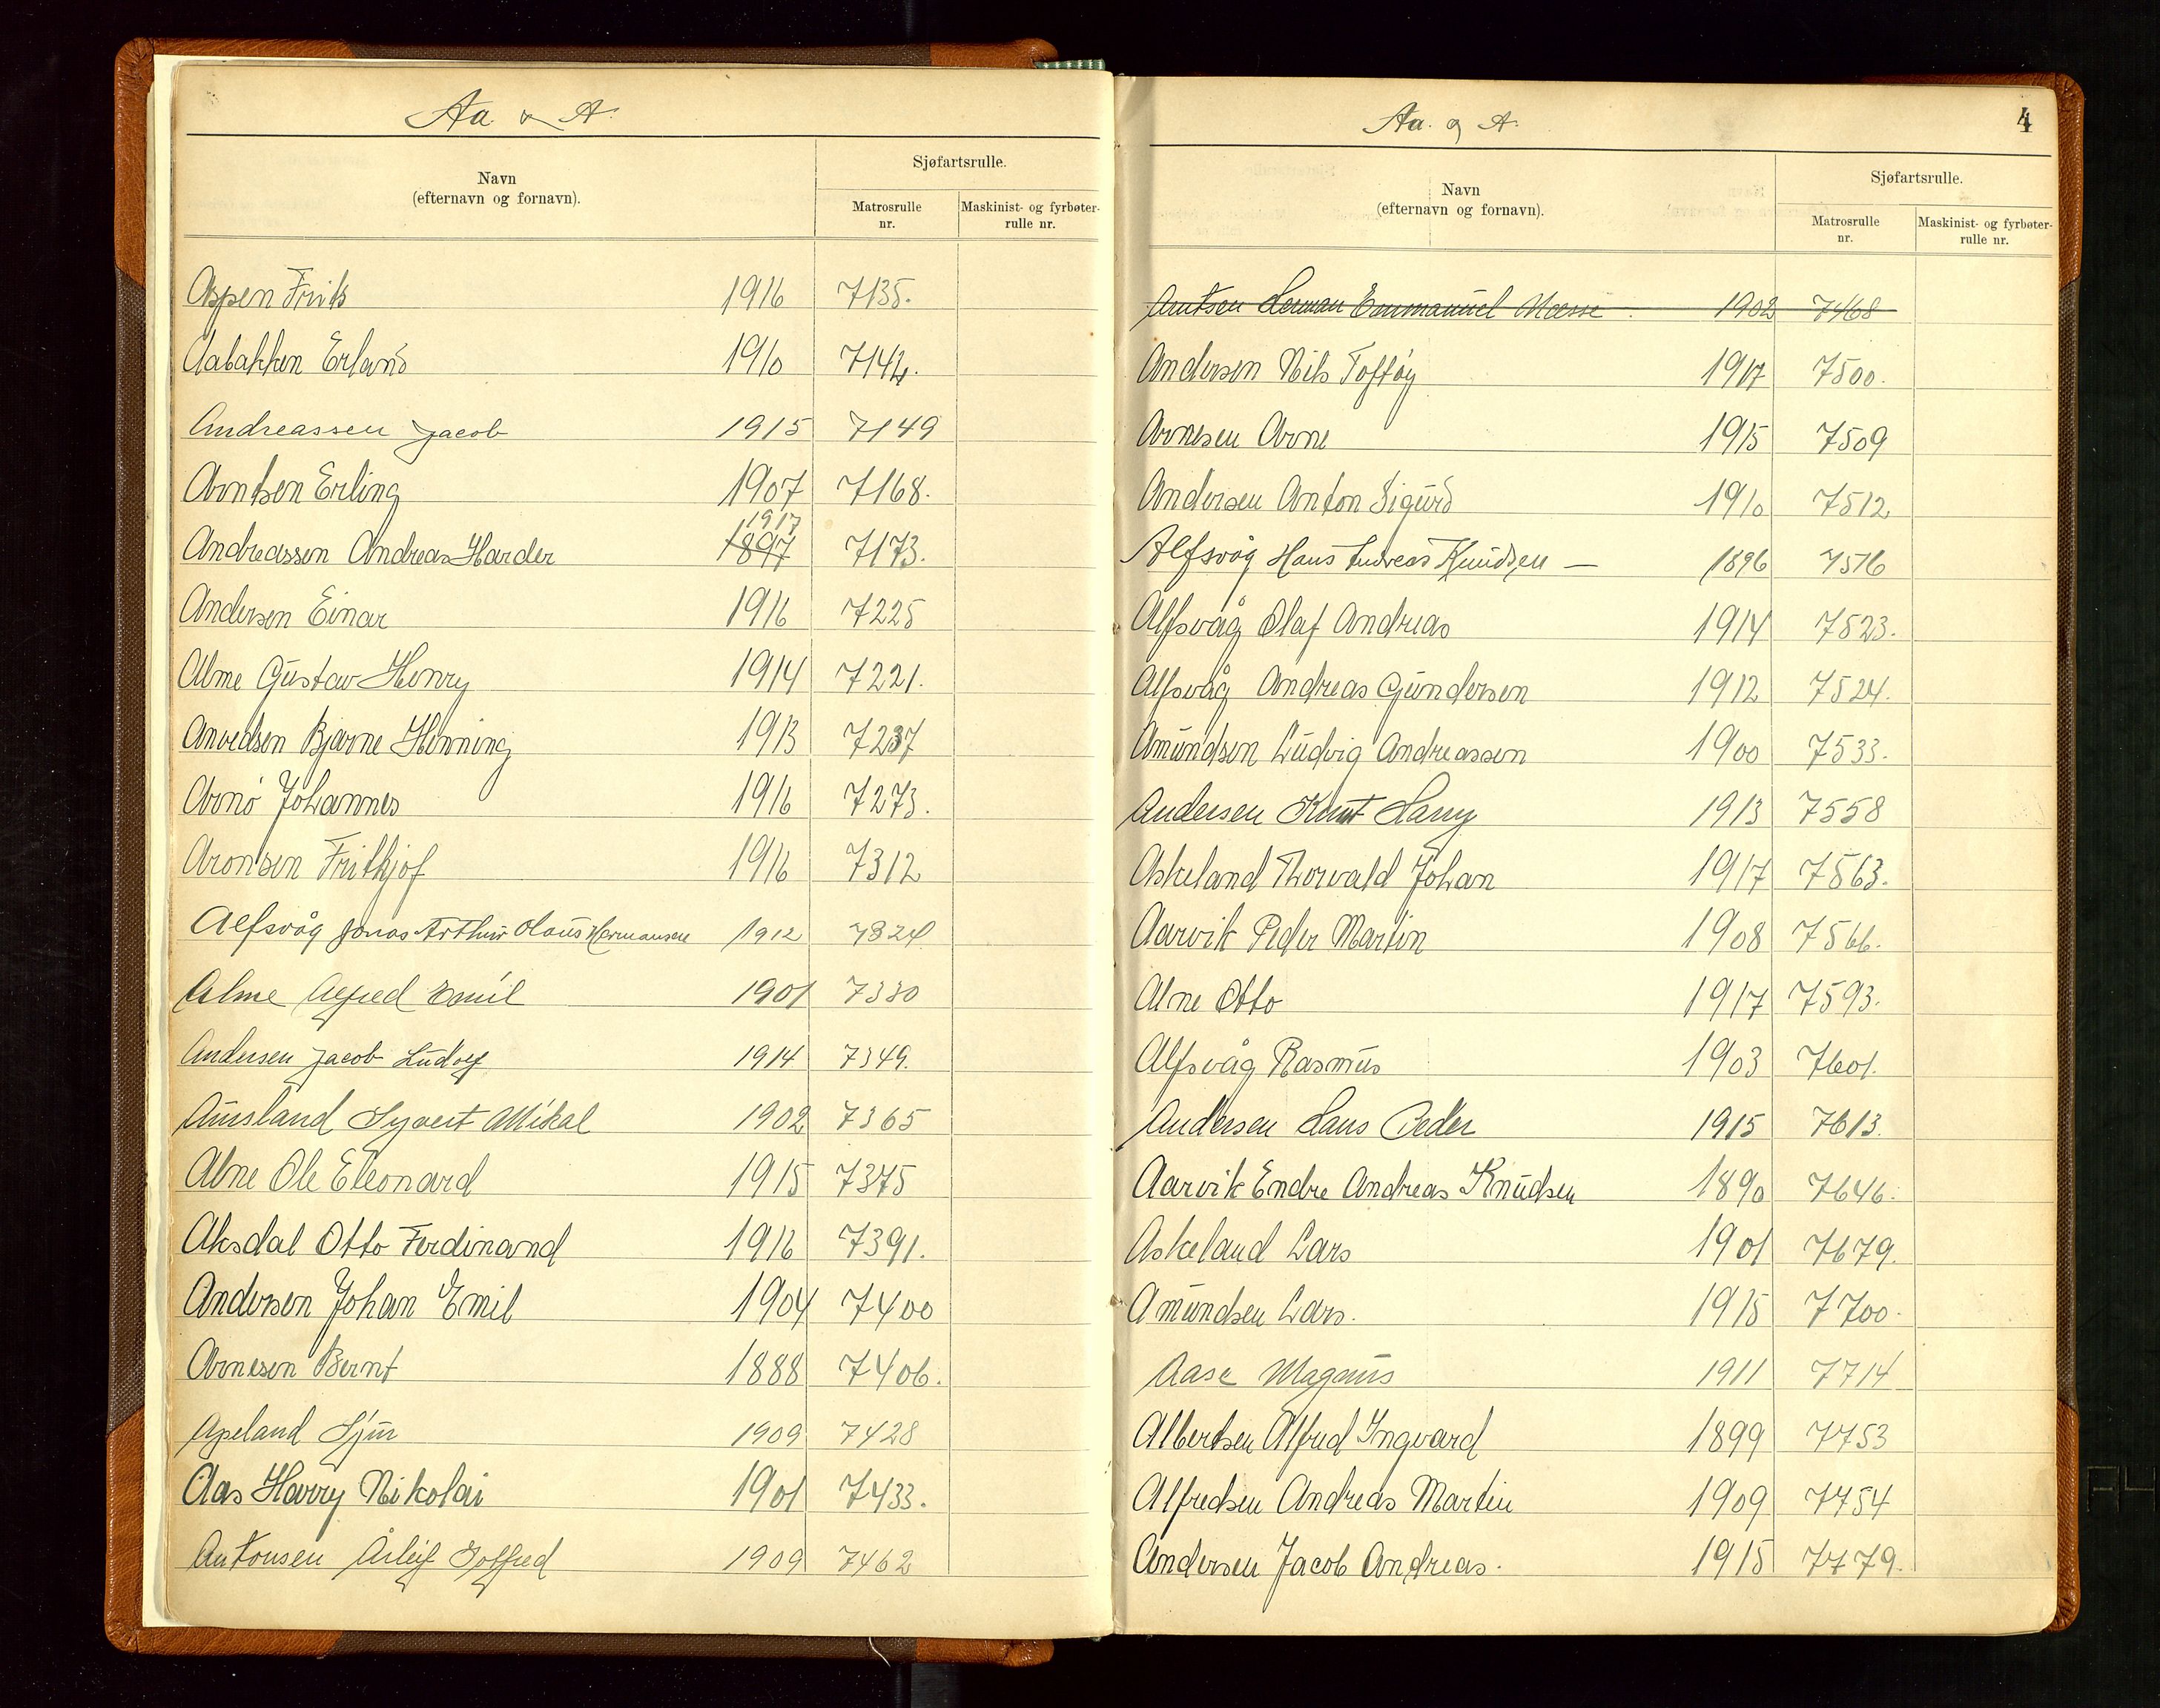 Aa & A.
Navn
(efternavn og fornavn).
Sjøfartsrulle.
Matrosrulle
nr.
Maskinist- og fyrbøter-
rulle nr.
Aspen Frits 1916 7135.
Aabakken Erland 1910 7142.
Andreassen Jacob 1915 7149
Arntsen Erling 1907 7168.
1917
Andreassen Andreas Harder 1897 7173.
Andersen Einar 1916 7225
Alme Gustav Henry 1914 7221.
Anvedsen Bjarne Henning 1913 7237
Arnø Johannes 1916 7273.
Aronsen Frithjof 1916 7312
Alfsvåg Jonas Arthur Olaus Hermansen 1912 7324
Alme Alfred Emil 1901 7330
Andersen Jacob Ludolf 1914 7349.
Aursland Syvert Mikal 1902 7365
Alne Ole Eleonard 1915 7375
Aksdal Otto Ferdinand 1916 7391.
Andersen Johan Emil 1904 7400
Arnesen Bernt 1888 7406.
Apeland Sjur 1909 7428
Aas Harry Nikolai 1901 7433.
Antonsen Årleif Gotfred 1909 7462
Aa. og A.
4
Navn
(efternavn og fornavn).
Sjøfartsrulle.
Matrosrulle
nr.
Maskinist- og fyrbøter-
rulle nr.
Arntsen Herman Emmanuel Mosse 1902 7468
Andersen Nils Toftøy 1917 7500.
Arnesen Arne 1915 7509
Andersen Anton Sigurd 1910 7512
Alfsvåg Hans Andreas Knudsen — 1896 7516
Alfsvåg Olaf Andreas 1914 7523.
Alfsvåg Andreas Gundersen 1912 7524.
Amundsen Ludvig Andreassen 1900 7533.
Andersen Knut Harry 1913 7558
Askeland Thorvald Johan 1917 7563.
Aarvik Peder Martin 1908 7566.
Alne Otto 1917 7593.
Alfsvåg Rasmus 1903 7601.
Andersen Hans Peder 1915 7613.
Aarvik Endre Andreas Knudsen 1890 7646.
Askeland Lars 1901 7679.
Amundsen Lars. 1915 7700.
Aase Magnus 1911 7714
Albertsen Alfred Ingvard 1899 7753
Alfredsen Andreas Martin 1909 7754
Andersen Jacob Andreas. 1915 7779.